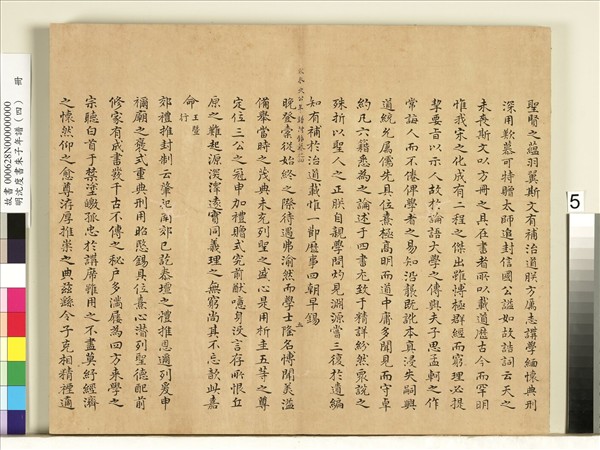 聖賢之蘊羽翼斯文有補治道朕方厲志講學緬懷典刑
深用歎慕可特贈太師追封信國公謚如故誥詞云天之
未喪斯文以方冊之具在書者所以載道歷古今而罕明
惟我宋之化成有二程之傑出雖博極群經而窮理必提
挈要旨以示人故於論語大學之傳與夫子思孟軻之作
常誨人而不倦俾學者之易知
道統允屬儒先具位熹極高明而道中庸多聞見而守卓
約凡六籍悉為之論述于四書尤致于精詳紛然眾說之
殊折以聖人之正朕自親學問灼見淵源嘗三復於遺編
知有補於治道載惟一節歷事四朝早錫
晚登橐從始終之際待遇弗渝然而學士陰名博聞美謚
備舉當時之茂典未究列聖之盛心是用析圭五等之尊
定位三公之冠申加禮贈式究前猷噫身沒言存所恨丘
原之難起源深澤遠實同義理之無窮尚其不忘歆此嘉
命 工壁
行
郊禮推封制云肇祀陽郊已乾泰壇之禮推恩適列爰申
禰廟之褒式重典刑用昭愍錫具位熹心潛列聖德配前
修家有成書幾千古不傳之秘戶多滿屨為四方來學之
宗聽白首于禁塗曒孤忠於講席雖用之不盡莫紓經濟
之懷然仰之愈尊洊厚推崇之典茲繇令子克相精禋適
三
故書00628N000000000
明沈度書朱子年譜（四） 冊
5